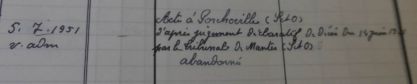 Acte à Porcheville (S&O)
5. 7. 1951 d'après jugement déclaratif de décès du 14 juin 1951
v. adm par le tribunal de Mantes (S&O)
abandonné